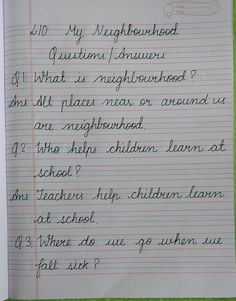 L10 My Neighbourhood
Questions/Answers
Q1 What is neighbourhood?
Ans All places near or around us
are neighbourhood.
Q2 Who helps children learn at
school?
Ans Teachers help children learn
at school.
Q3 Where do we go when we
fall sick?